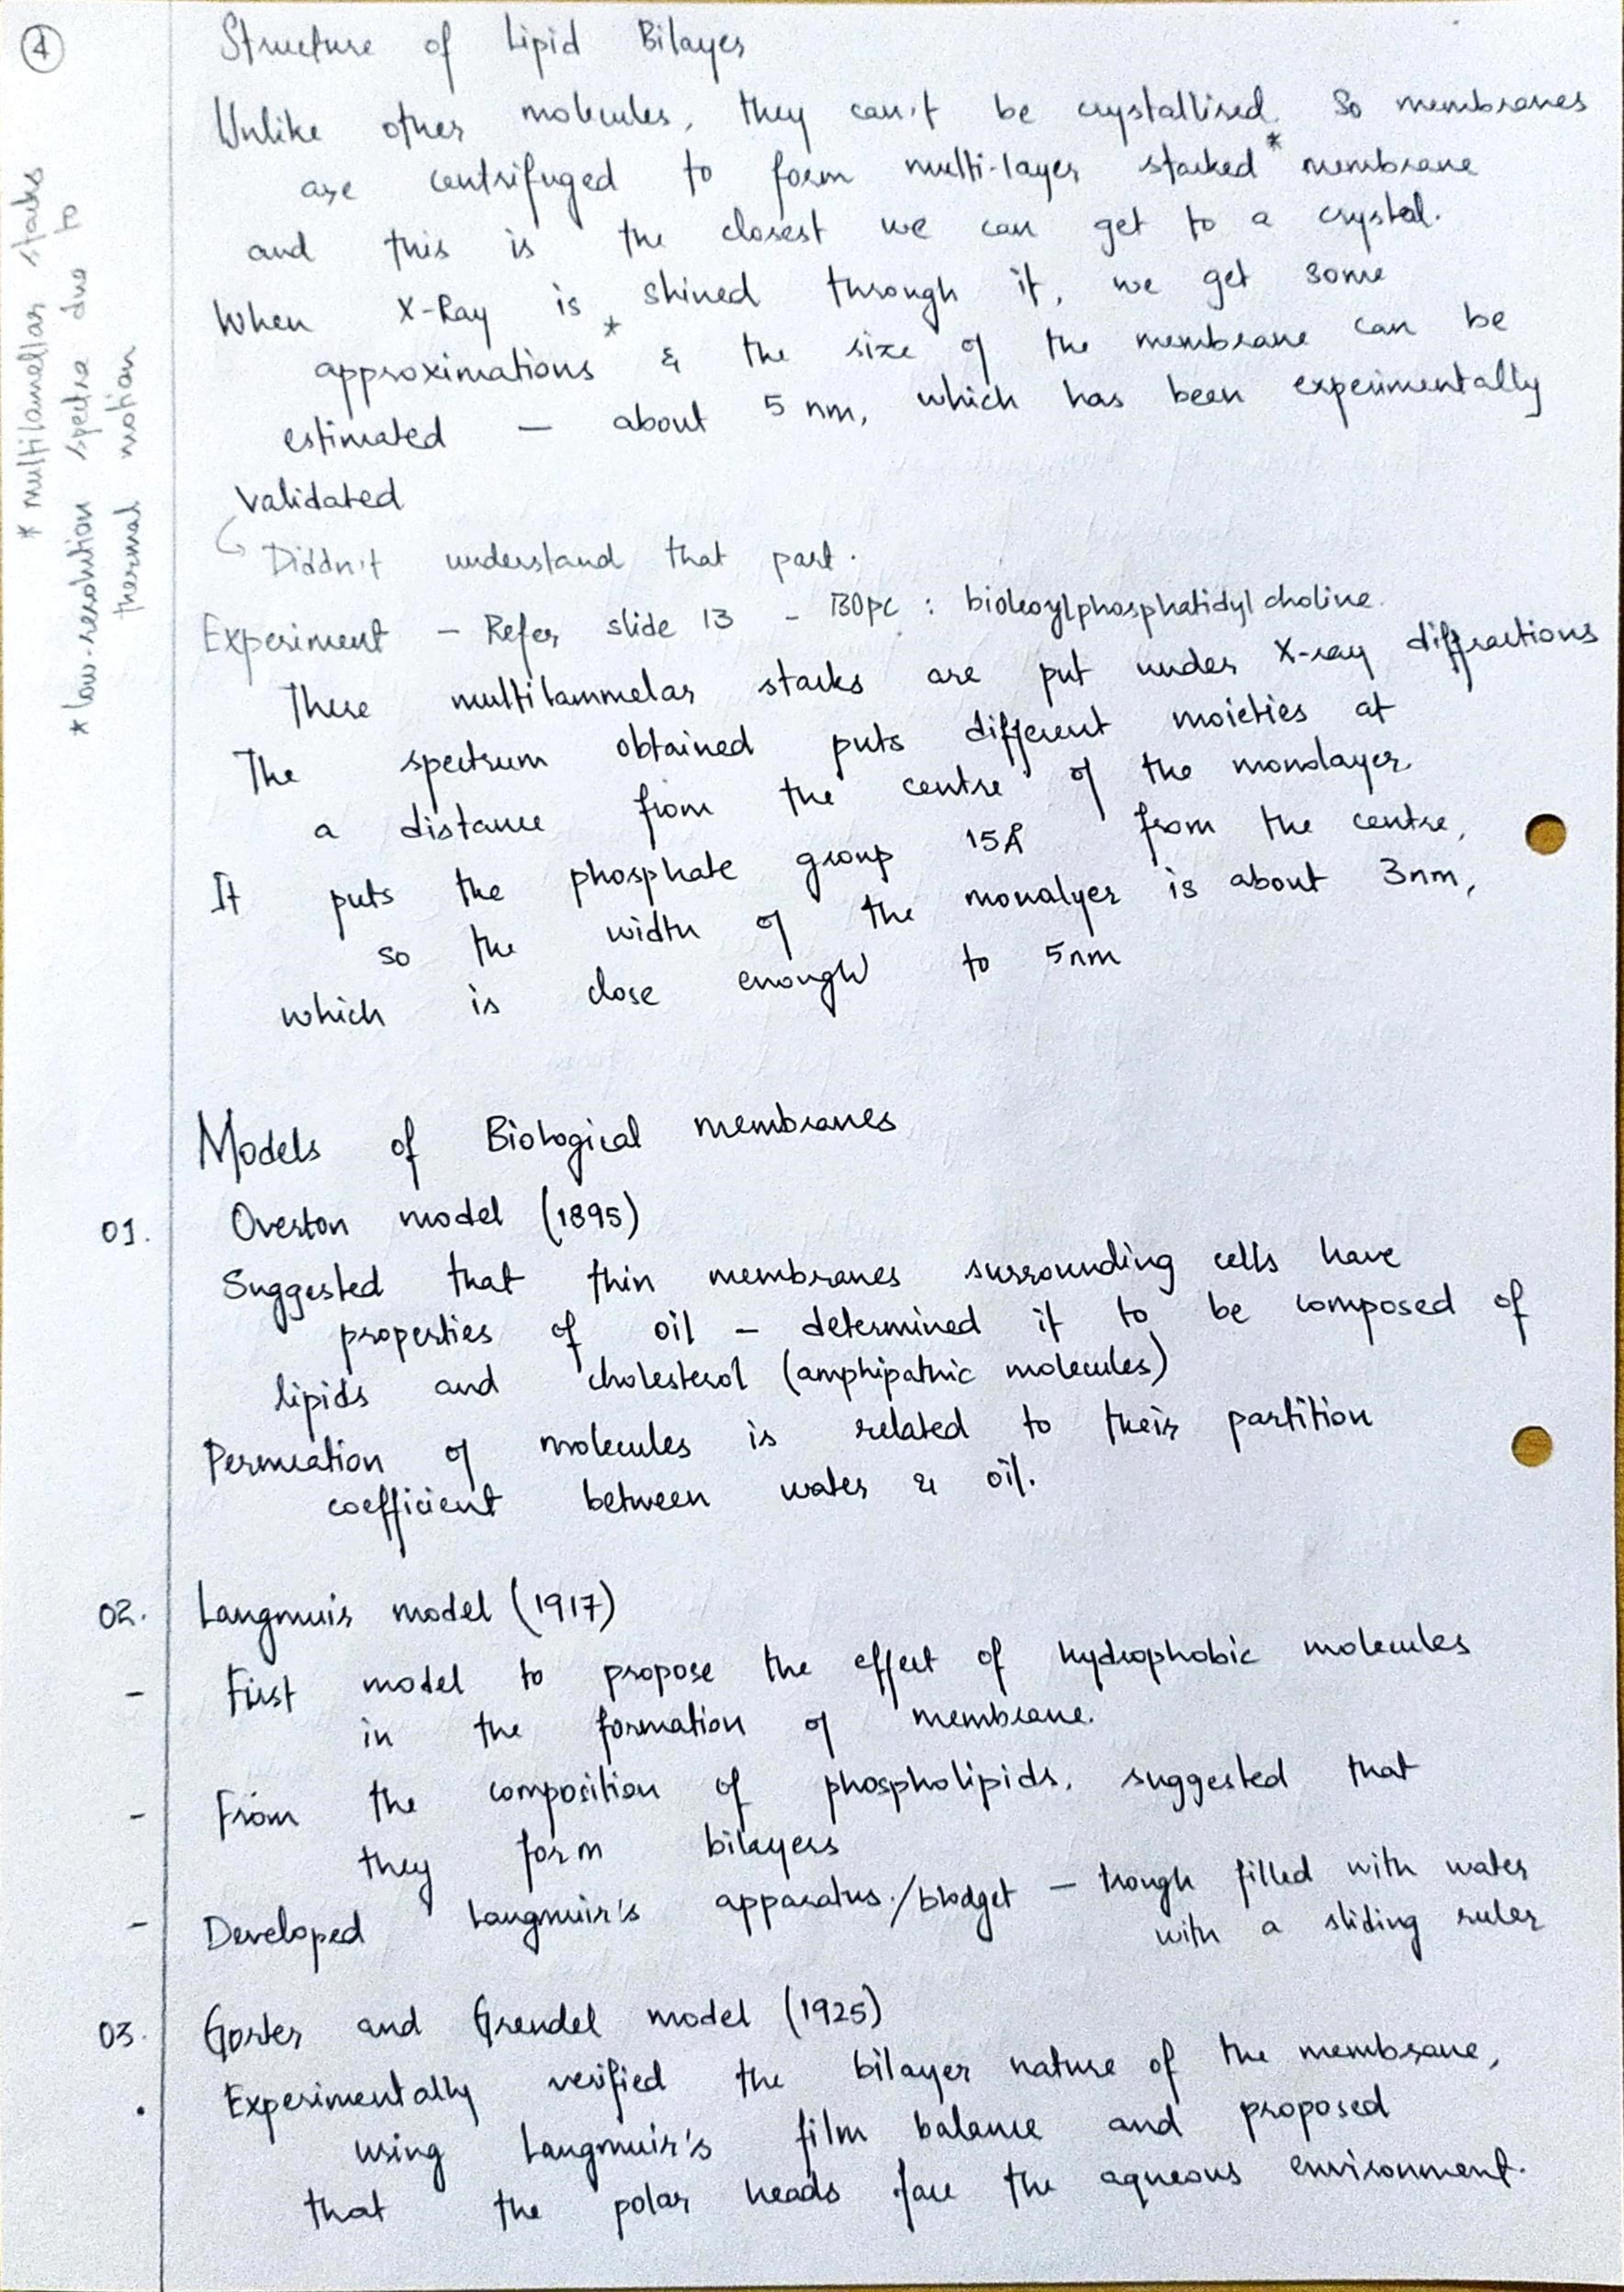 4
Structure of Lipid Bilayer
Unlike other molecules, they can't be crystallised. So membranes
are centrifuged to form multi-layer stacked* membrane
and this is the closest we can get to a crystal.
When X-Ray is shined through it, we get some
approximations* & the size of the membrane can be
estimated — about 5 nm, which has been experimentally
validated
Diddn't understand that part.
Experiment - Refer slide 13 - : bioleoylphosphatidyl choline.
These multilammelar stacks are put under X-ray diffractions
The spectrum obtained puts different moieties at
a distance from the centre of the monolayer.
It puts the phosphate group 15Å from the centre,
so the width of the monalyer is about 3nm,
which is close enough to 5nm
Models of Biological membranes
01. Overton model (1895)
Suggested that thin membranes surrounding cells have
properties of oil - determined it to be composed of
lipids and cholesterol (amphipathic molecules)
Permeation of molecules is related to their partition
coefficient between water & oil.
02. Langmuir model (1917)
- First model to propose the effect of hydrophobic molecules
in the formation of membrane.
- From the composition of phospholipids, suggested that
they form bilayers
- Developed Langmuir's apparatus./blodget — trough filled with water
with a sliding ruler
03. Gorter and Grendel model (1925)
. Experimentally verified the bilayer nature of the membrane,
using Langmuir's film balance and proposed
that the polar heads face the aqueous environment.
* multilamellar stacks
* low-resolution spectra due to
thermal motion